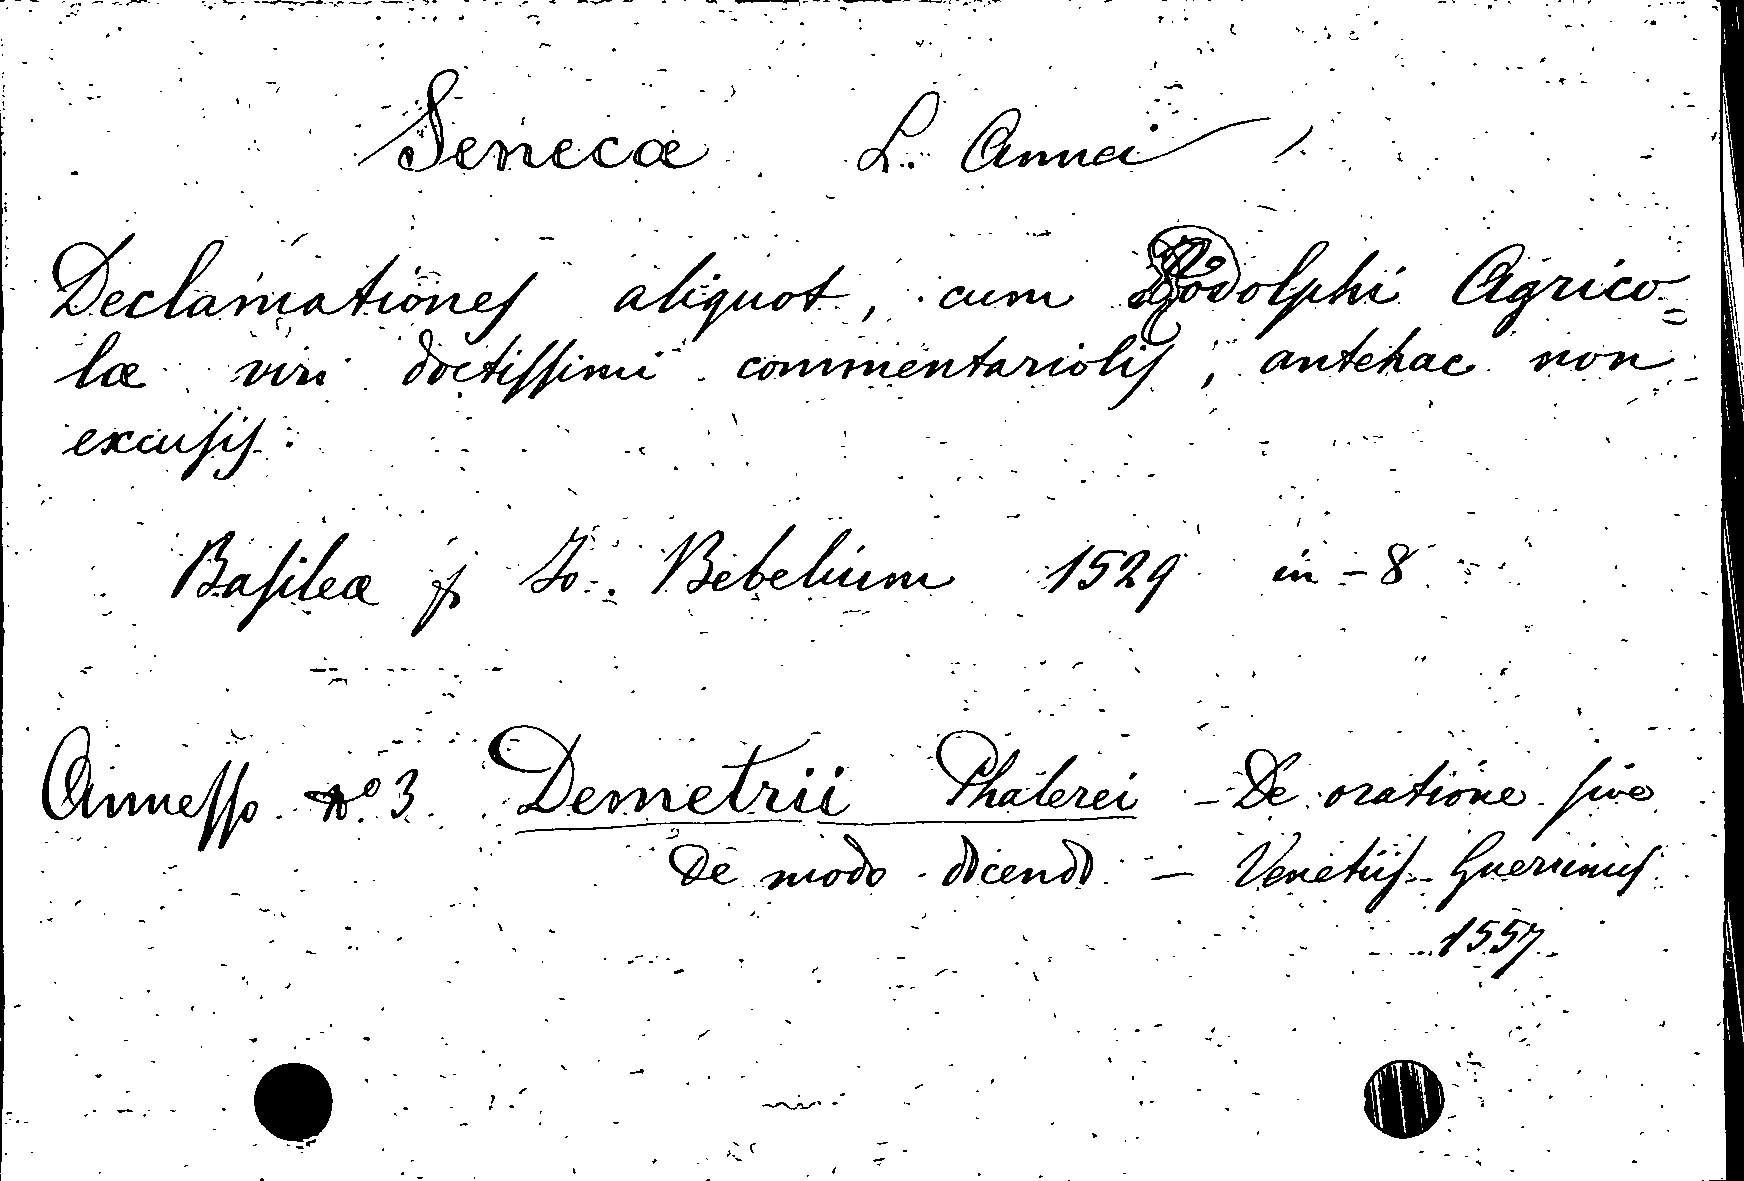 Senecæ L. Annei
Declamationes aliquot, cum Rodolphi Agrico=
læ viri doctissimi commentariolis, antehac non
excusis.
Basileæ p Io. Bebelium 1529 in-8
Annesso No 3 Demetrii Phalerei - De oratione sive
de modo dicendi - Venetiis - Guerrinus
1557